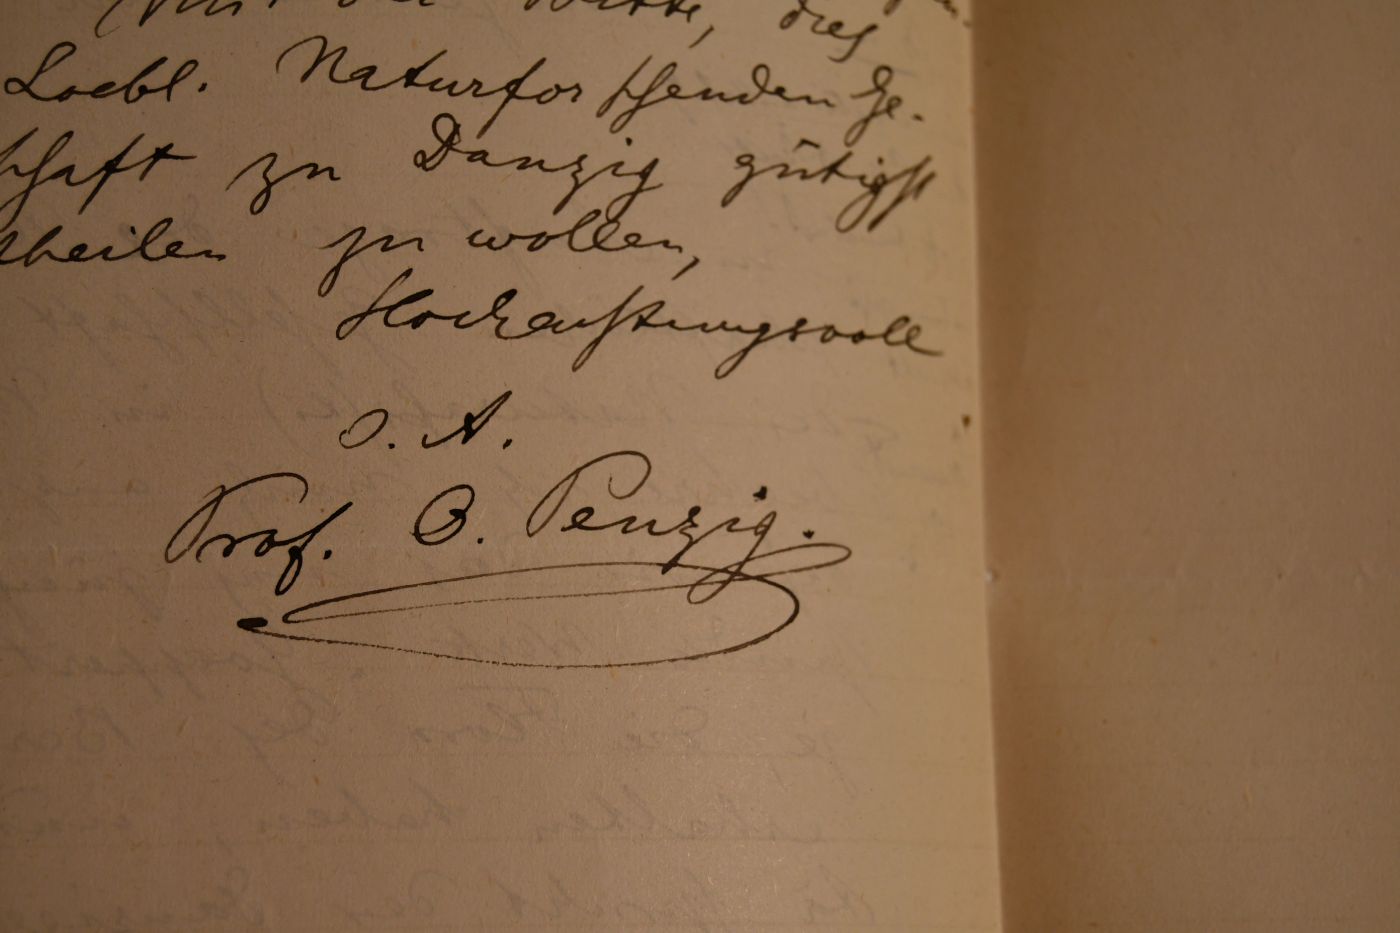 Mit der Bitte, dies
Loebl. Naturforschenden Ge-
schaft zu Danzig gütigst
theilen zu wollen,
Hochachtungsvoll
O. A.
Prof. O. Penzig.